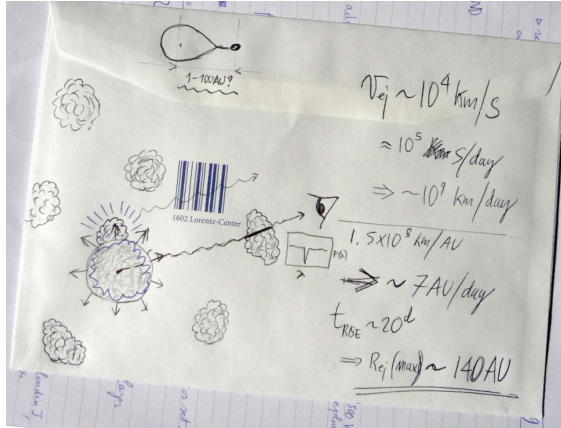 1-100AU?
1602 Lorentz-Center
F(λ)
λ
V_ej ~ 10⁴ km/s
≈ 10⁵ s/day
⇒ ~10⁹ km/day
1.5x10⁸ km/AU
⇒ ~ 7AU/day
t_RISE ~20ᵈ
⇒ R_ej (max) ~ 140AU
ND
layer